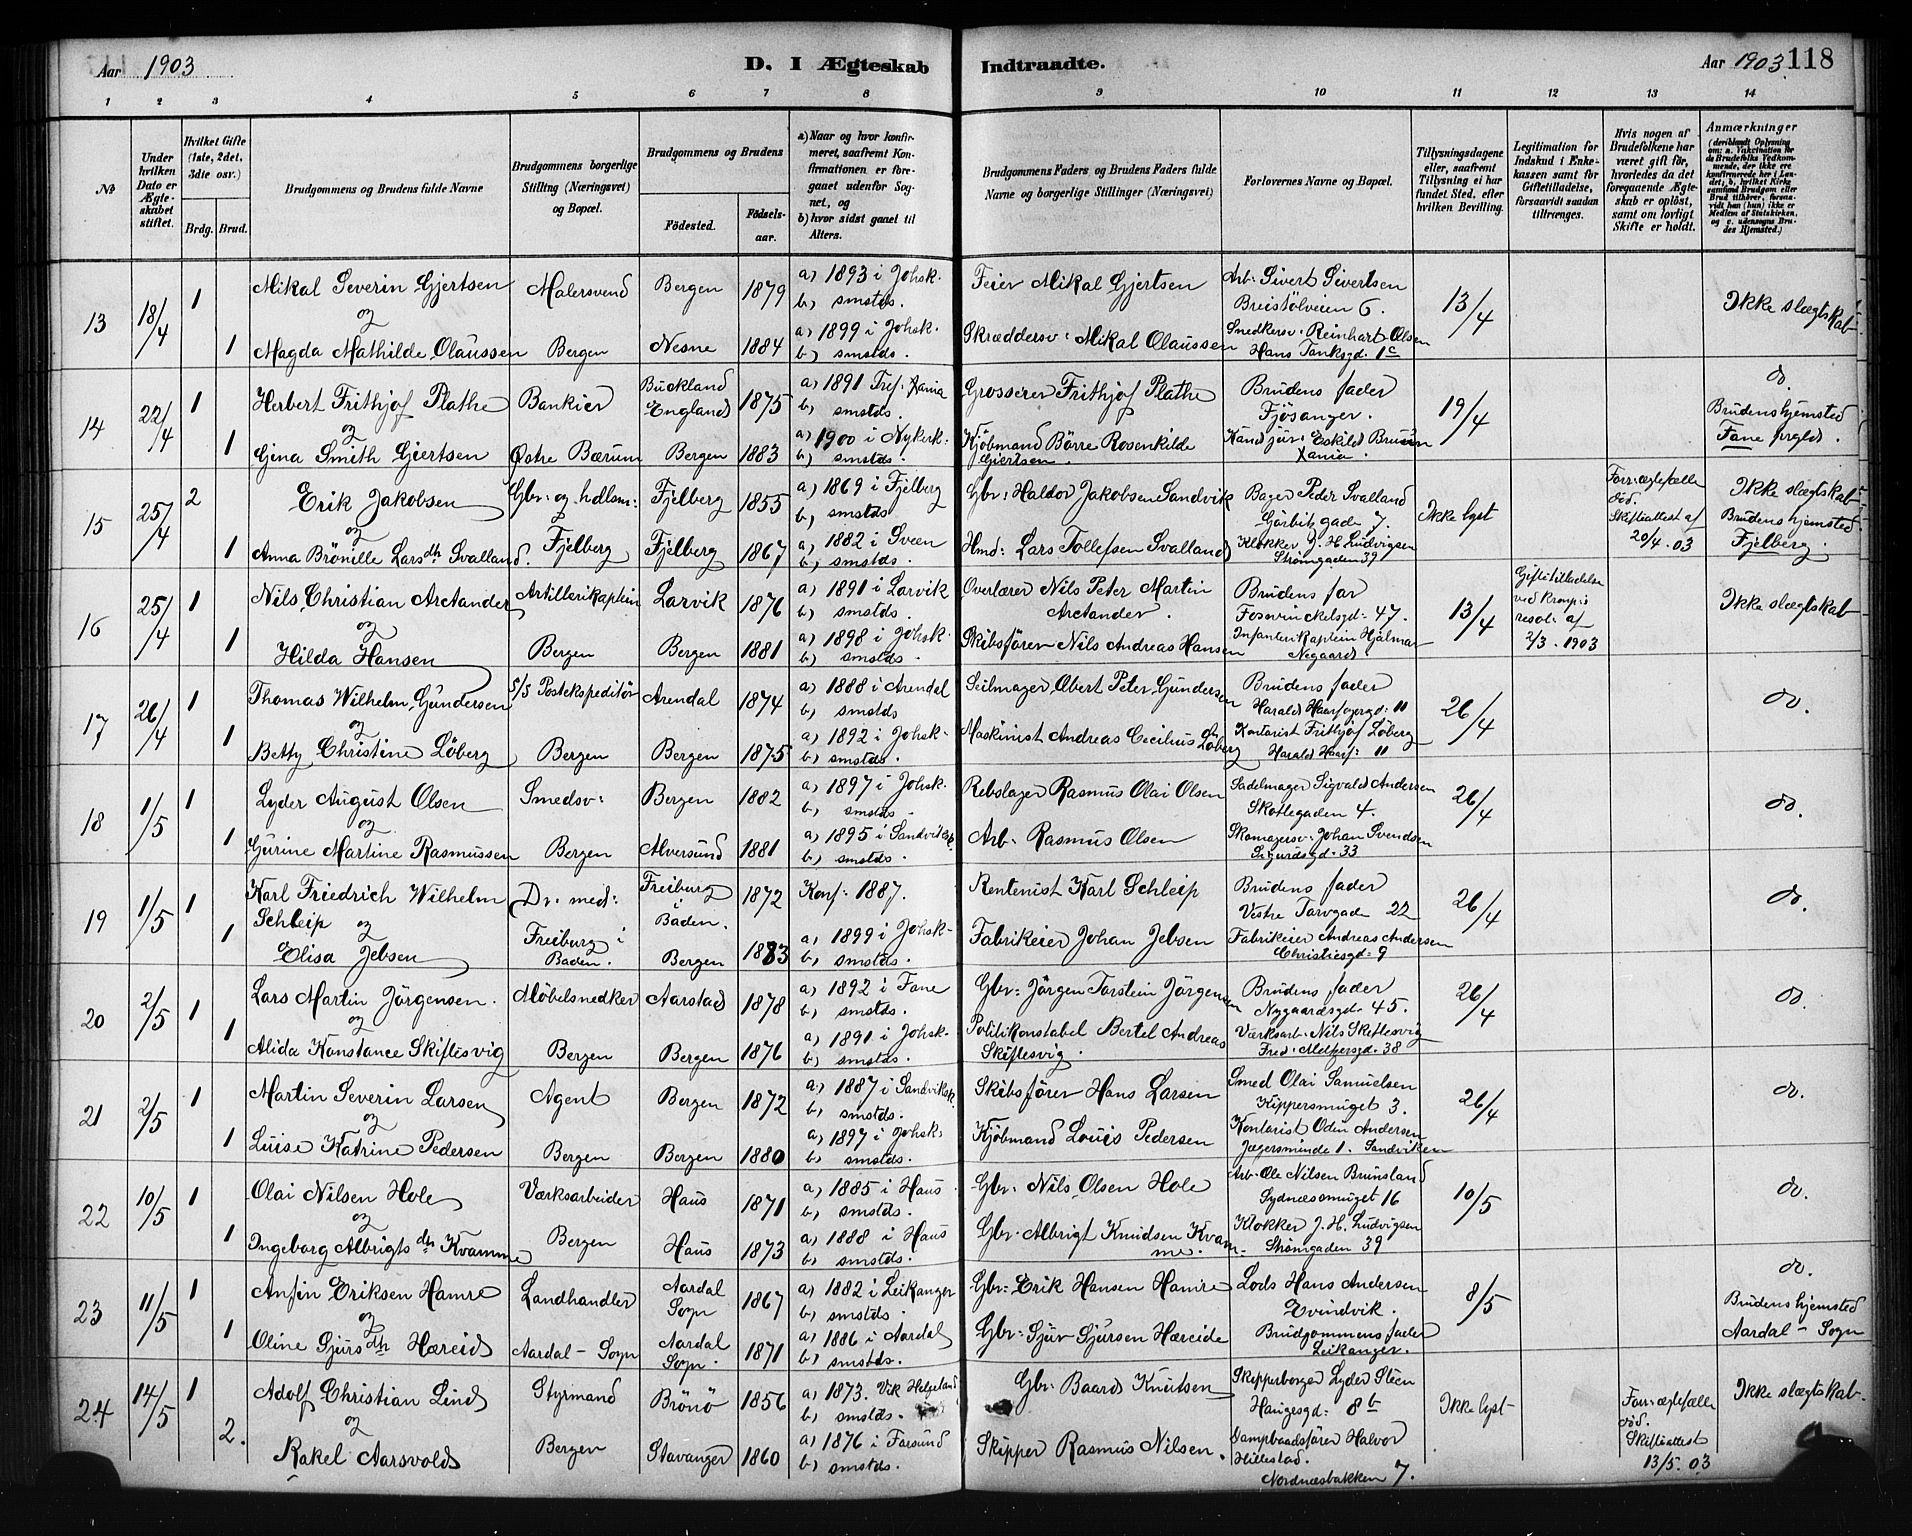 Aar 1903
D. I Ægteskab Indtraadte.
Aar 1903 118
1 2 3 4 5 6 7 8 9 10 11 12 13 14
No
Under hvilken Dato er Ægteskabet stiftet.
Hvilket Gifte (1ste, 2det, 3die osv.)
Brdg. Brud.
Brudgommens og Brudens fulde Navne
Brudgommens borgerlige Stilling (Næringsvei) og Bopæl.
Brudgommens og Brudens
Fødested.
Fødselsaar.
a) Naar og hvor konfirmeret, saafremt Konfirmationen er foregaaet udenfor Sognet, og
b) hvor sidst gaaet til Alters.
Brudgommens Faders og Brudens Faders fulde Navne og borgerlige Stillinger (Næringsvei)
Forlovernes Navne og Bopæl.
Tillysningsdagene eller, saafremt Tillysning ei har fundet Sted, efter hvilken Bevilling.
Legitimation for Indskud i Enkekassen samt for Giftetilladelse, forsaavidt saadan tiltrænges.
Hvis nogen af Brudefolkene har været gift før, hvorledes da det foregaaende Ægteskab er opløst, samt om lovligt Skifte er holdt.
Anmærkninger
(deriblandt Oplysning om: a. Vakcination for de Brudefolks Vedkommende, der ikke ere konfirmerede her i Landet, b. hvilket Kirkesamfund Brudgom eller Brud tilhører, forsaavidt han (hun) ikke er Medlem af Statskirken, og c. udensogns Brudes Hjemsted.)
13 18/4 1 Mikal Severin Gjertsen Malersvend Bergen 1879 a) 1893 i Johsk. b) smstds. Feier Mikal Gjertsen Arb: Sivert Sivertsen Breistölveien 6. 13/4 Ikke slægtskab
og
1 Magda Mathilde Olaussen Bergen Nesne 1884 a) 1899 i Johsk. b) smstds. Skræddersv: Mikal Olaussen Smedkersv: Reinhart Olsen Hans Tanksgd. 1c
14 22/4 1 Herbert Frithjof Plathe Bankier Buckland England 1875 a) 1891 Tref. Xania b) smstds. Grosserer Frithjof Plathe Brudens fader Fjösanger. 19/4 do. Brudens hjemsted Fane prgld.
og
1 Gina Smith Gjertsen Østre Bærum Bergen 1883 a) 1900 i Nykerk. b) smstds. Kjöbmand Börre Rosenkilde Giertsen Kand jur: Eskild Bruun Xania.
15 25/4 2 Erik Jakobsen Gbr: og hdlsm: Fjelberg 1855 a) 1869 i Fjelberg b) smstds Gbr: Haldor Jakobsen Sandvik Bager Peder Svalland Görbitzgade 7. Ikke lyst Forr: ægtefælle död. Skifteattest af 20/4. 03 Ikke slægtskab Brudens hjemsted Fjelberg.
og
1 Anna Brönille Larsdth Svalland. Fjelberg Fjelberg 1867 a) 1882 i Sveen b) smstds. Hmd: Lars Tollefsen Svalland Klokker J. H. Ludvigsen Strömgaden 39
16 25/4 1 Nils Christian Arctander Artillerikaptein Larvik 1876 a) 1891 i Larvik b) smstds. Overlærer Nils Peter Martin Arctander. Brudens far Fosswinckelsgd: 47. 13/4 Giftetilladelse ved kronpr:s resol: af 2/3. 1903 Ikke slægtskab
og
1 Hilda Hansen Bergen Bergen 1881 a) 1898 i Johsk. b) smstds. Skibsförer Nils Andreas Hansen Infanterikaptein Hjalmar Negaard.
17 26/4 1 Thomas Wilhelm Gundersen S/S Postekspeditör Arendal 1874 a) 1888 i Arendal b) smstds Seilmager Obert Peter Gundersen Brudens fader Harald Haarfagersgd: 11 26/4 do.
og
1 Betty Christine Löberg Bergen Bergen 1875 a) 1892 i Johsk. b) smstds. Maskinist Andreas Cecilius Löberg Kontorist Frithjof Löberg Harald Haarf: 11
18 1/5 1 Lyder August Olsen Smedsv: Bergen 1882 a) 1897 i Johsk. b) smstds. Rebslager Rasmus Olai Olsen Sadelmager Sigvald Andersen Skottegaden 4. 26/4 do.
og
1 Gurine Martine Rasmussen Bergen Alversund 1881 a) 1895 i Sandvikesk. b) smstds. Arb. Rasmus Olsen Skomagersv: Johan Svendsen Sigurdsgd. 33
19 1/5 1 Karl Friedrich Wilhelm Schleip Dr. med: Freiburg i Baden. 1872 Konf: 1887. Rentenist Karl Schleip Brudens fader Vestre Torvgade 22 26/4 do.
og
1 Elisa Jebsen Freiburg i Baden. Bergen 1883 a) 1899 i Johsk. b) smstds. Fabrikeier Johan Jebsen Fabrikeier Andreas Andersen Christiesgd: 9
20 2/5 1 Lars Martin Jörgensen. Möbelsnedker Aarstad 1878 a) 1892 i Fane b) smstds. Gbr: Jörgen Torstein Jörgensen Brudens fader Nygaardsgd. 45. 26/4 do.
og
1 Alida Konstance Skiftesvig Bergen Bergen 1876 a) 1891 i Johsk. b) smstds. Politikonstabel Bertel Andreas Skiftesvig. Værksarb. Nils Skiftesvig Fred. Meltzersgd. 38
21 2/5 1 Martin Severin Larsen Agent Bergen 1872 a) 1887 i Sandviksk. b) smstds. Skibsförer Hans Larsen Smed Olai Samuelsen Kippersmuget 3. 26/4 do.
og
1 Luise Katrine Pedersen Bergen Bergen 1880 a) 1897 i Johsk. b) smstds. Kjöbmand Louis Pedersen Kontorist Odin Andersen Jægersminde 1. Sandviken
22 10/5 1 Olai Nilsen Hole Værksarbeider Haus 1871 a) 1885 i Haus b) smstds. Gbr: Nils Olsen Hole Arb. Ole Nilsen Brunsland Sydnæsmuget 16 10/5 do.
og
1 Ingeborg Albrigtsdtr Kvamme Bergen Haus 1873 a) 1888 i Haus b) smstds. Gbr. Albrigt Knudsen Kvamme. Klokker J. H. Ludvigsen Strömgaden 39
23 11/5 1 Anfin Eriksen Hamre Landhandler Aardal Sogn 1867 a) 1882 i Leikanger b) smstds. Gbr: Erik Hansen Hamre Lods Hans Andersen Evindvik. 8/5 do. Brudens hjemsted Aardal - Sogn
og
1 Oline Gjursdth Hæreid Aardal - Sogn Aardal Sogn. 1871 a) 1886 i Aardal b) smstds. Gbr: Sjur Sjursen Hæreide Brudgommens fader Leikanger.
24 14/5 1 Adolf Christian Lind Styrmand Brönö 1856 a) 1873. Vik Helgeland b) smstds. Gbr. Baard Knutsen Skipperborger Lyder Steen Haugesgd: 8b Ikke lyst Forr: ægtefælle död. Skifteattest 13/5. 03 Ikke slægtskab.
og
2. Rakel Aarsvold Bergen Stavanger 1860 a) 1876 i Farsund b) smstds. Skipper Rasmus Nilsen. Dampbaadsförer Halvor Hillestad. Nordnæsbakken 7.